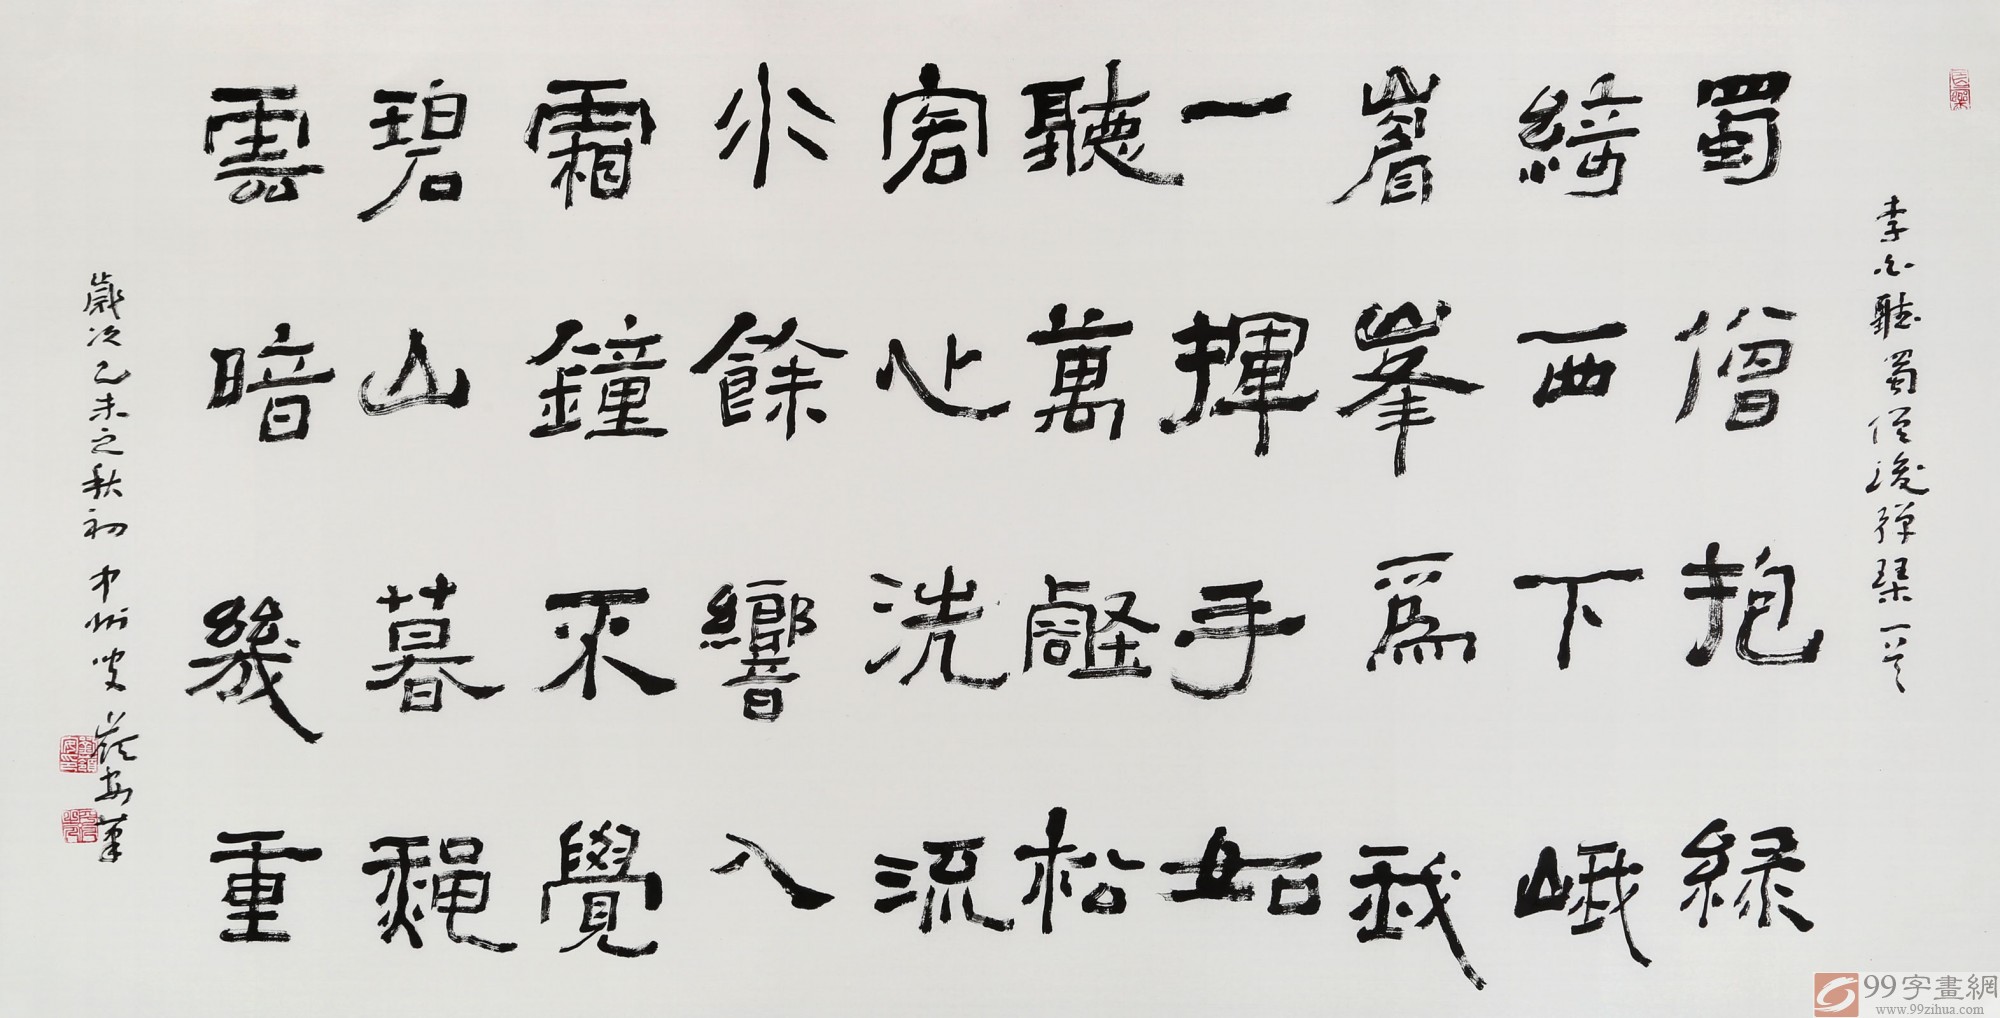 李白聽蜀僧濬彈琴一首
蜀僧抱綠
綺西下峨
嵋峯爲我
一揮手如
聽萬壑松
客心洗流
水餘響入
霜鐘不覺
碧山暮龝
雲暗幾重
歲次乙未之秋初 中州叟 嶺安筆
99字畫網
www.99zihua.com